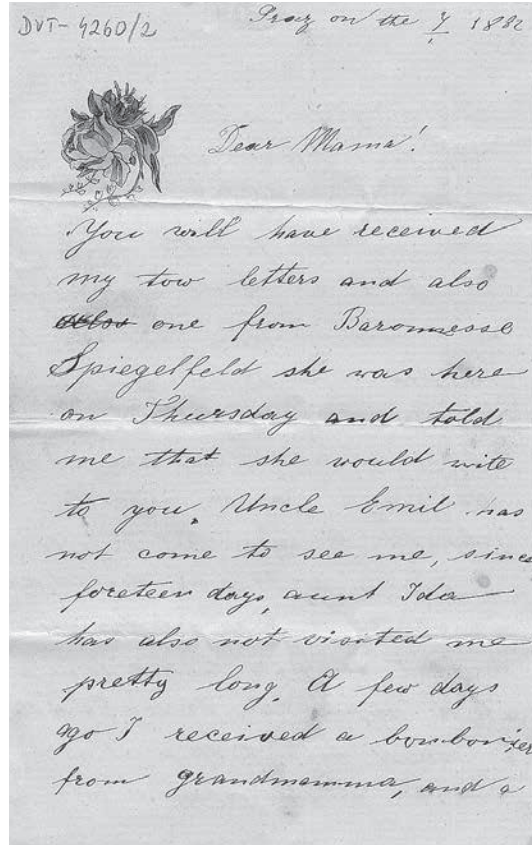 DVT-4260/2
Graz on the 7/1 1882
Dear Mama!
You will have received
my tow letters and also
one from Baronnesse
Spiegelfeld she was here
on Thursday and told
me that she would wite
to you. Uncle Emil has
not come to see me, since
foreteen days, aunt Ida
has also not visited me
pretty long. A few days
ago I received a
from grandmamma, and a